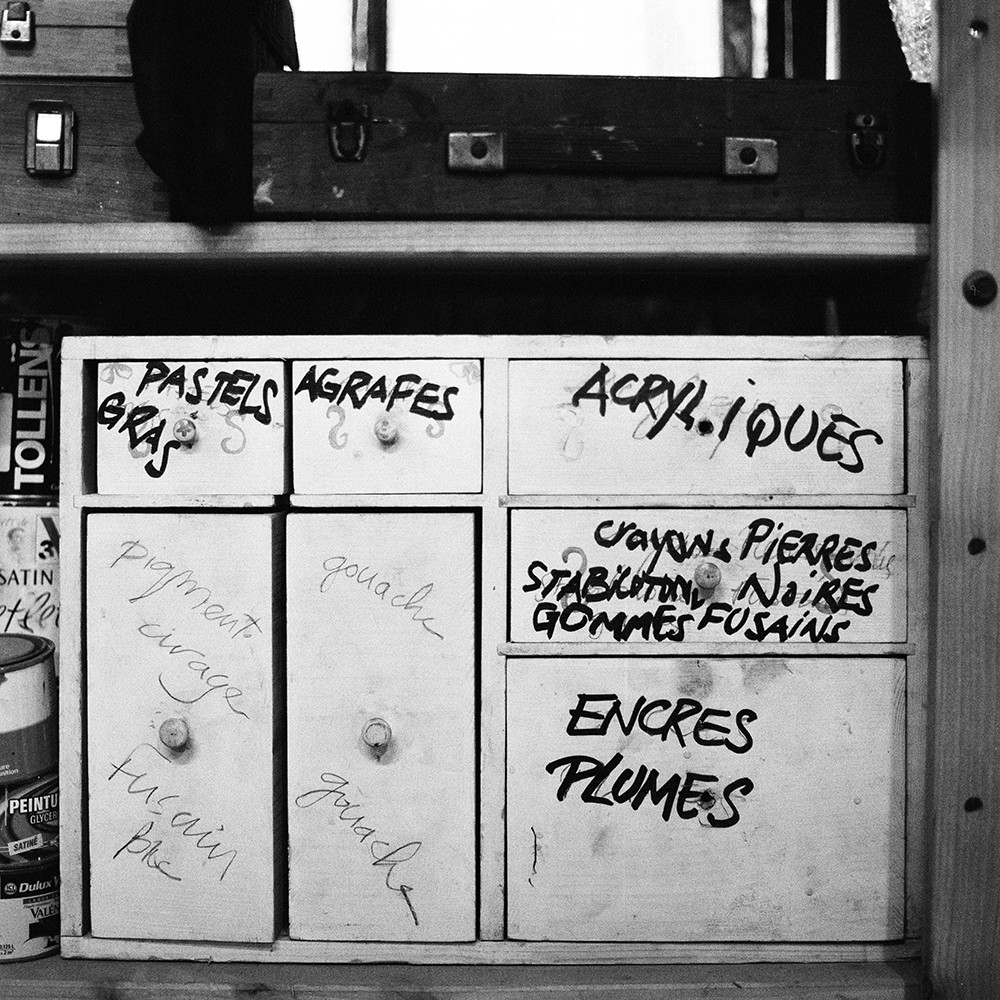 PASTELS
GRAS
AGRAFES
ACRYLiQUES
crayons PiERRES
NOiRES
GOMMES FUSAiNS
ENCRES
PLUMES
pigment
cirage
fusain
gouache
gouache
TOLLENS
3
SATIN
PEINTU
GLYCER
SATINÉ
Dulux
VALEN